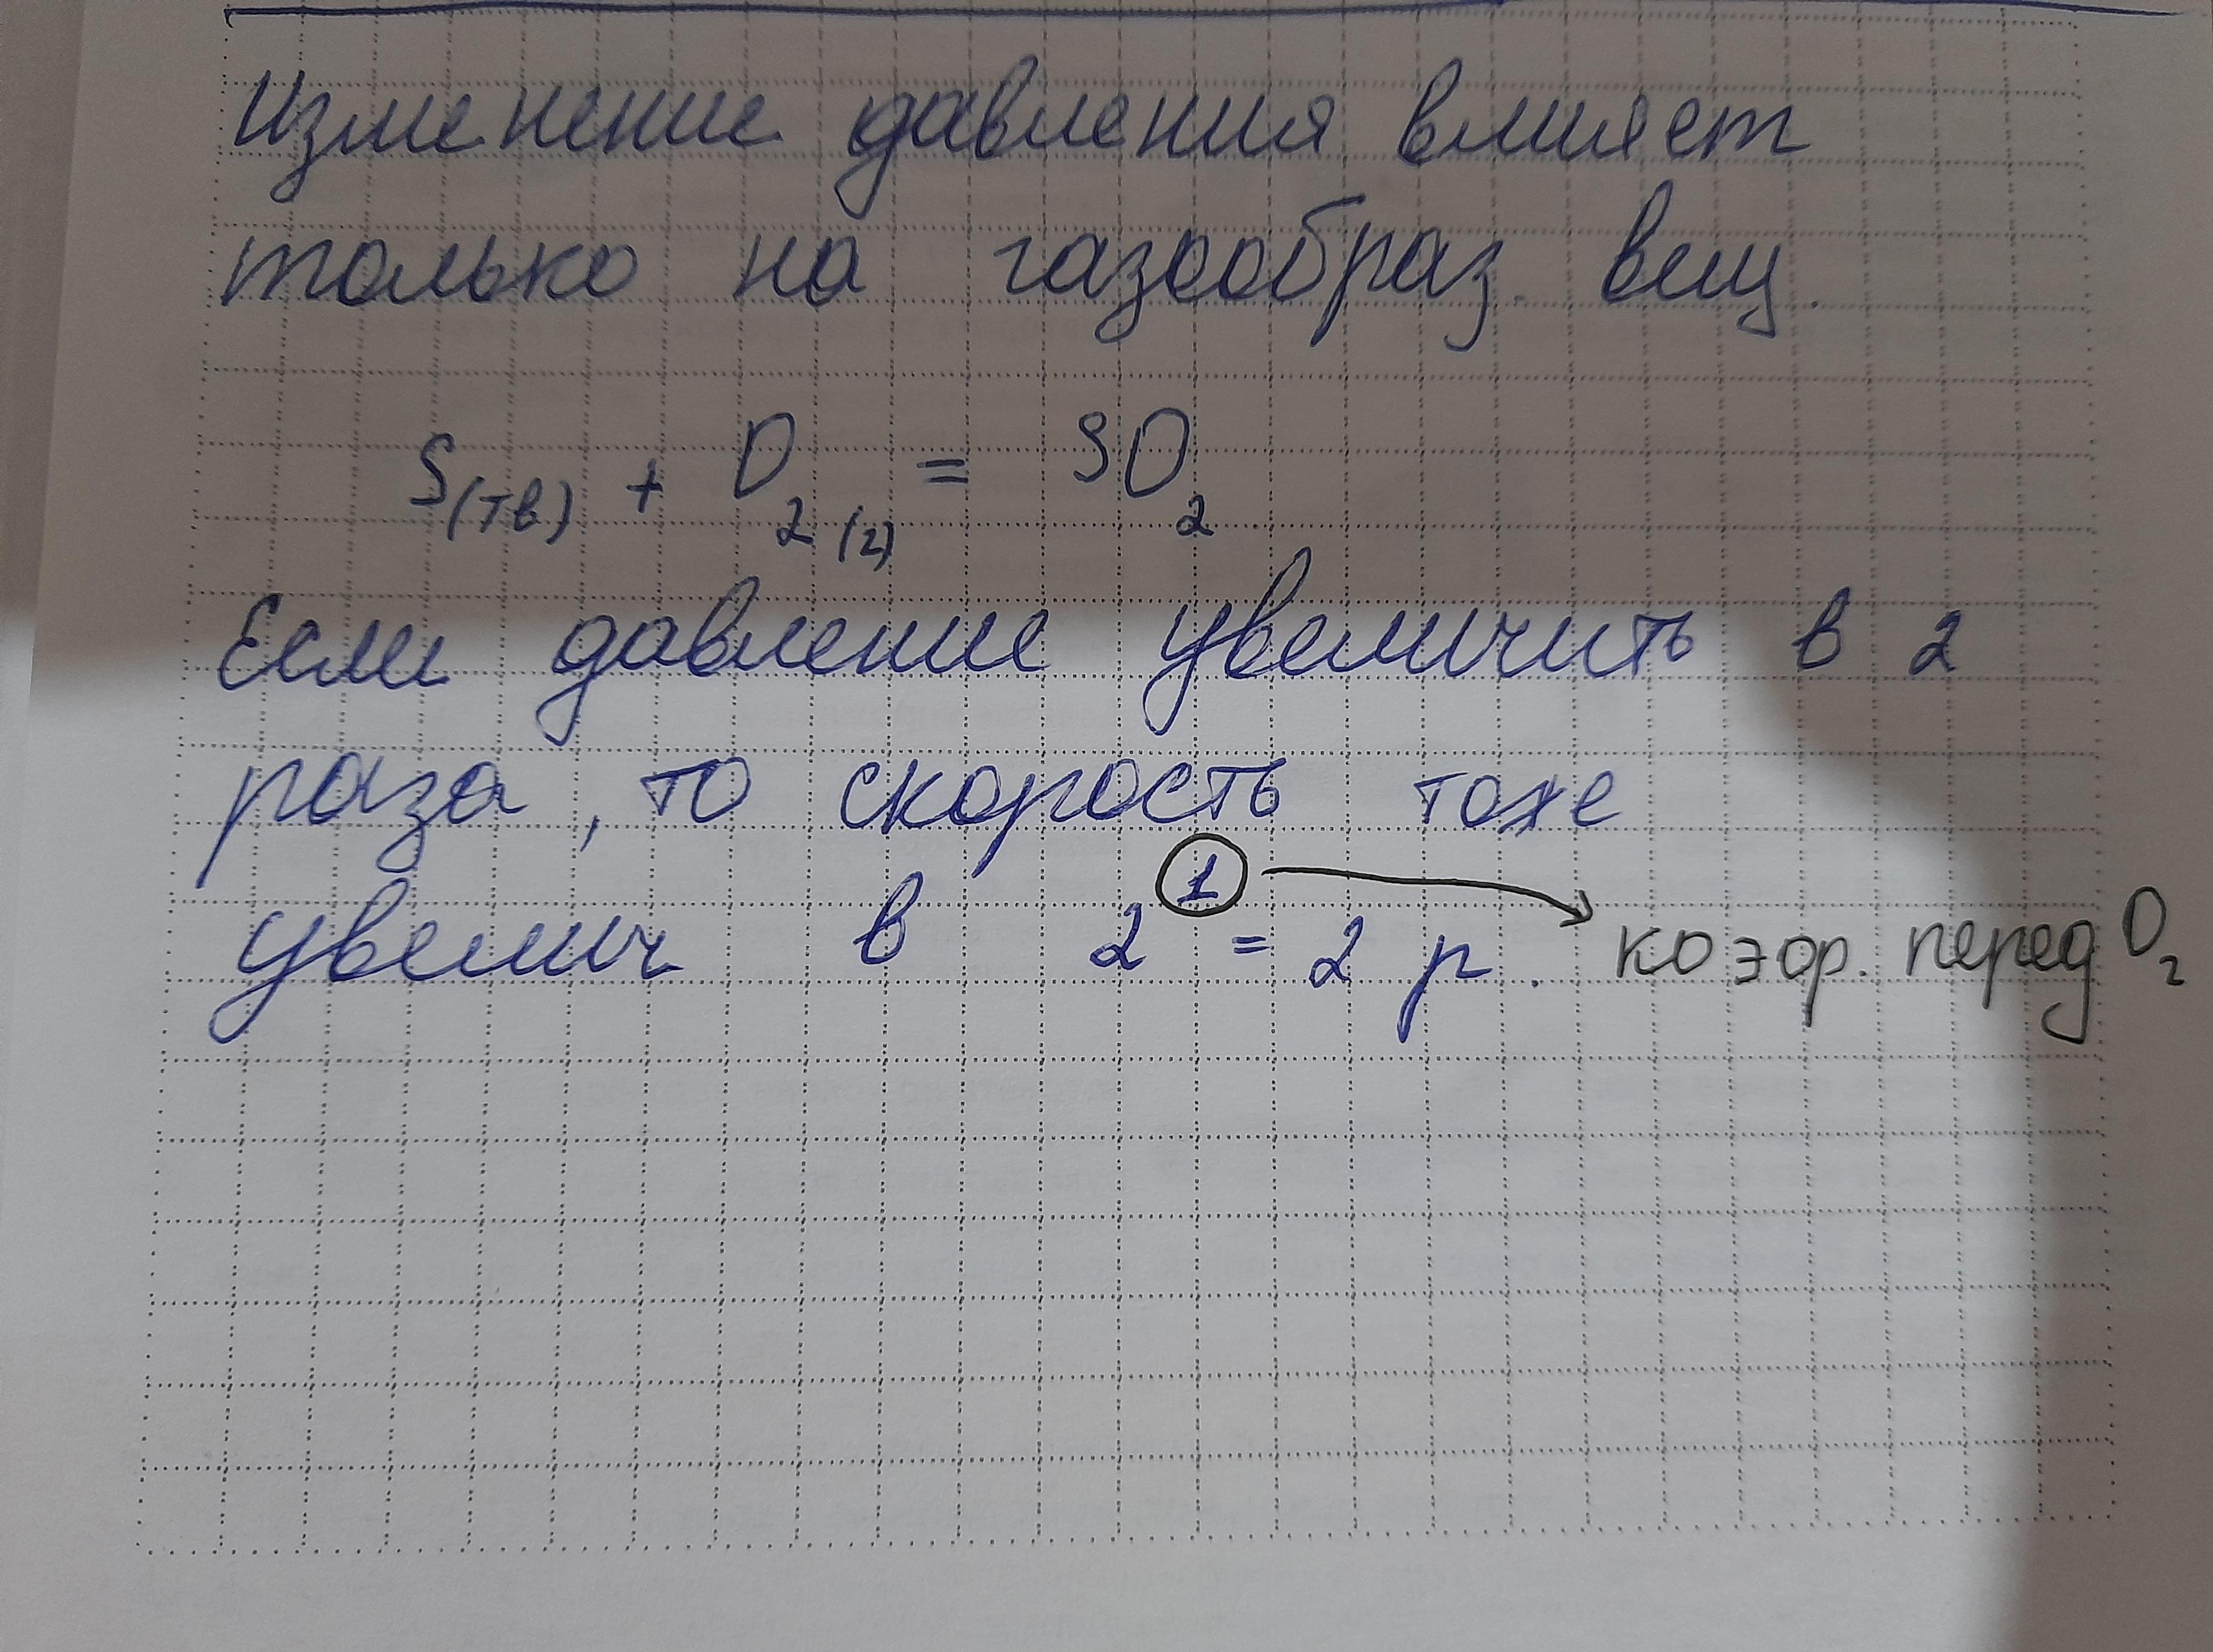 Изменение давления влияет
только на газообраз. вещ.
S(тв) + O2 (г) = SO2
Если давление увеличить в 2
раза, то скорость тоже
увелич в 2^1 = 2 р. коэф. перед O2